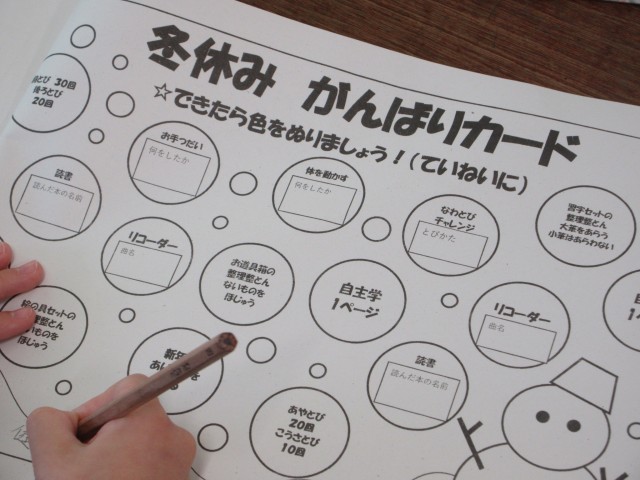 冬休み がんばりカード
☆できたら色をぬりましょう!(ていねいに)
30回
後ろとび
20回
お手つだい
何をしたか
体を動かす
何をしたか
なわとび
チャレンジ
とびかた
習字セットの
整理整とん
大筆をあらう
小筆はあらわない
読書
読んだ本の名前
リコーダー
曲名
お道具箱の
整理整とん
ないものを
ほじゅう
自主学
1ページ
リコーダー
曲名
絵の具セットの
整理整とん
ないものを
ほじゅう
新年
を
読書
読んだ本の名前
あやとび
20回
こうさとび
10回